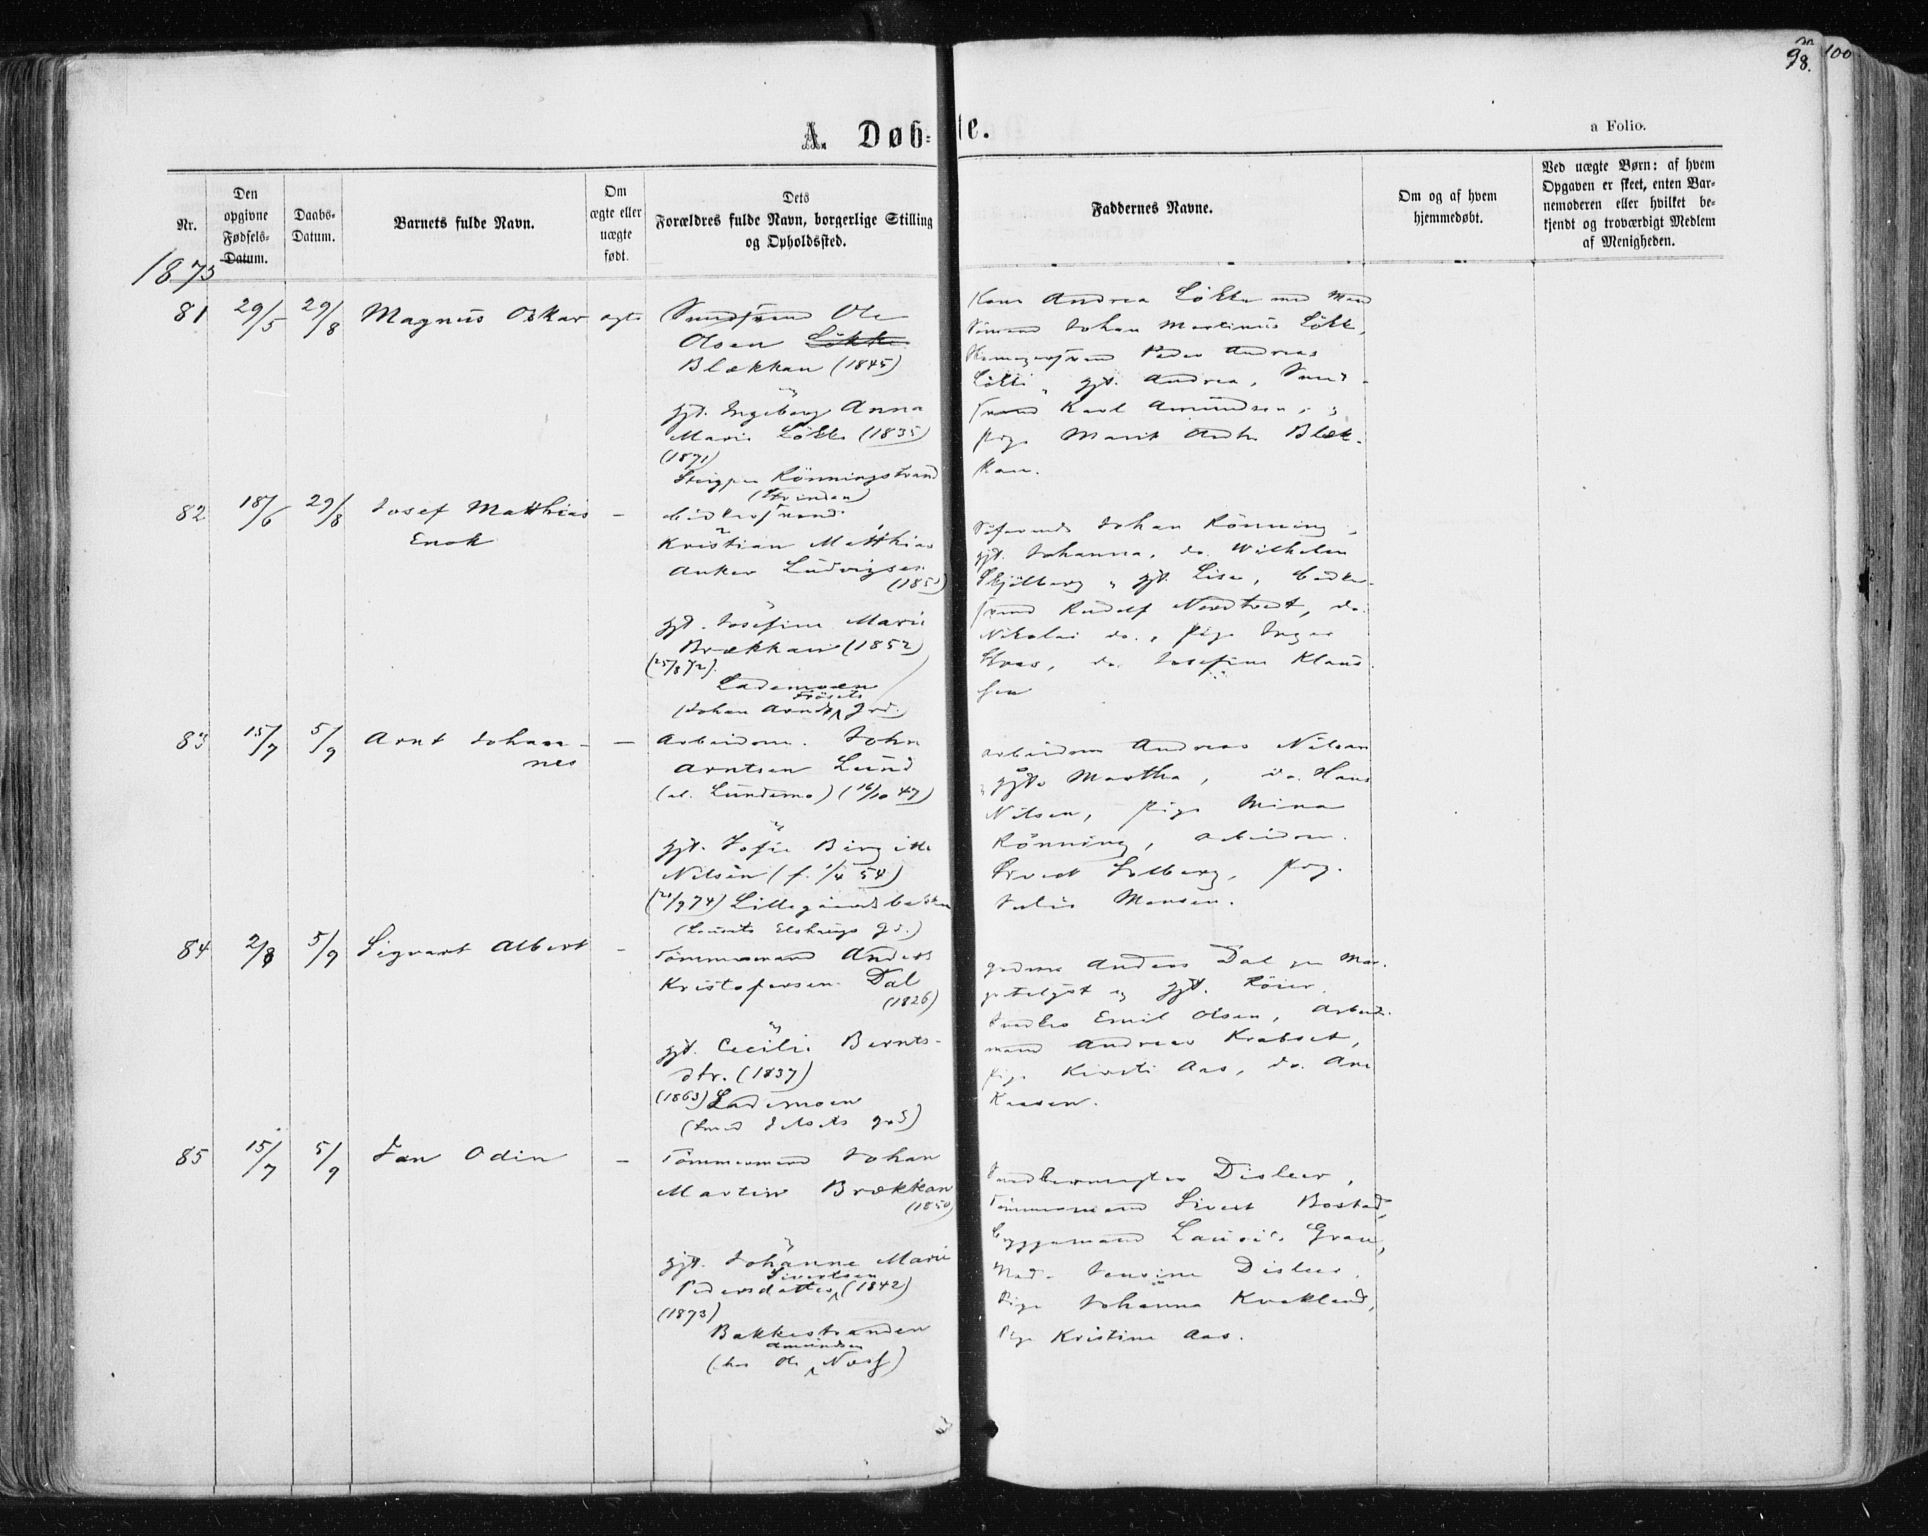 98. 100
A. Døb- te.
a Folio.
Nr.
Den opgivne Fødsels-Datum.
Daabs-Datum.
Barnets fulde Navn.
Om ægte eller uægte født.
Dets Forældres fulde Navn, borgerlige Stilling og Opholdssted.
Faddernes Navne.
Om og af hvem hjemmedøbt.
Ved uægte Børn: af hvem Opgaven er skeet, enten Barnemoderen eller hvilket bekjendt og troværdigt Medlem af Menigheden.
1875
81 29/5 29/8 Magnus Oskar ægte
Ole
Olsen Løkke
Blækkan (1845)
gjt. Ingeborg Anna
Marie Løkke (1835)
(1871)
Rönningstrand
(Strinden)
Kone Andrea Løkke med Mand
Johan Martinus Løkke,
Peder Andreas
Løkke, gjt. Andrea,
Karl Amundsen,
pige Marit Blæk-
kan.
82 18/6 29/8 Josef Matthias –
Enok
Kristian Matthias
Anker Ludvigsen
gjt. Josefine Marie
Brækkan (1852)
(25/8 72)
Lademoen
Frösets
(Johan Arndts Grd.)
Johan Rönning,
gjt. Johanna, do. Wilhelm
Skjölberg, gjt. Lise,
Rudolf Nordtvedt, do.
Nikolai do., pige Inger
do. Josefine Klaus-
sen
83 15/7 5/9 Arnt Johan- –
nes
Arbeidsm. John
Arntsen Lund
(al. Lundemo) (16/10 47)
gjt. Sofie Birgitte
Nilsen (f. 1/4 54)
Lillegaardsbakken
(Laurits Elshaugs Gd.)
Arbeidsm Andreas Nilsen
gjt. Martha, do. Hans
Nilsen, pige Mina
Rönning, Arbeidsm.
Sivert Solberg, pig.
Julie Monsen.
84 2/8 5/9 Sigvart Albert –
Tömmermand Anders
Kristofersen Dal
(1826)
gjt. Cecilie Bernts-
dtr. (1837)
(1863) Lademoen
Anders Dal
gjt.
Emil Olsen, Arbeids-
mand Andreas Krabset,
pige Kirsti Aas, do. Ane
85 15/7 5/9 Jan Odin –
Tömmermand Johan
Martin Brækkan
(1850)
gjt. Johanne Marie
Sivertsen
Pedersdatter (1842)
(1873)
Bakkestranden
Amundsen
(hos Ole Næss)
Disleer,
Tömmermand Sivert Bostad,
Bryggemand Lauris Gran,
Mad. Jensine Disleer,
Pige Johanna Kvakland,
Pige Kristine Aas.